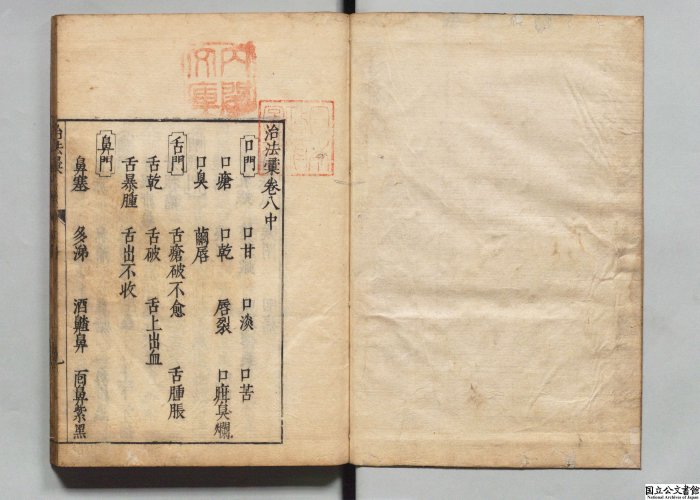 治法彙卷八中
口門 口甘 口淡 口苦
口瘡 口乾 唇裂 口糜臭爛
口臭 繭唇
舌門 舌瘡破不愈 舌腫脹
舌乾 舌破 舌上出血
舌暴腫 舌出不收
鼻門
鼻塞 多涕 酒齇鼻 面鼻紫黑
治法彙
内閣文庫
国立公文書館
National Archives of Japan